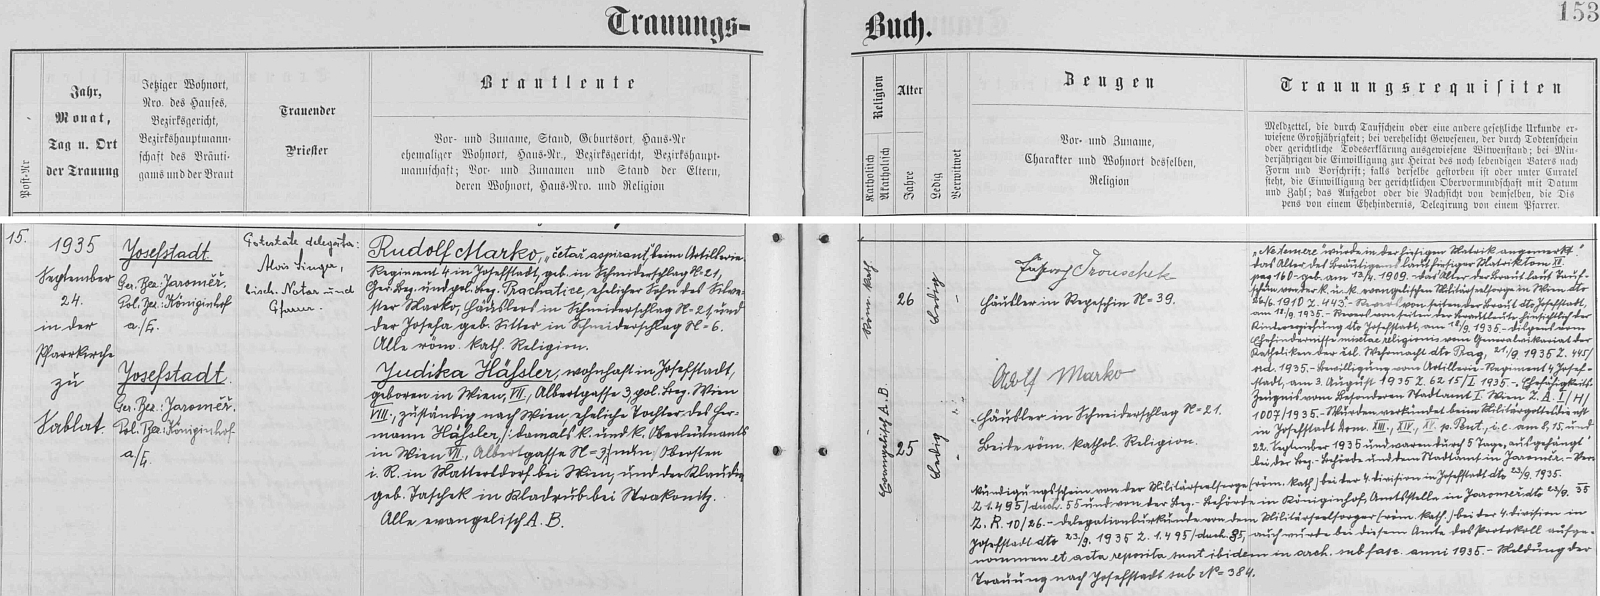 Trauungs-
Buch.
153
Post-Nr
Jahr,
Monat,
Tag u. Ort
der Trauung
Jetziger Wohnort,
Nro. des Hauses,
Bezirksgericht,
Bezirkshauptmann-
schaft des Bräuti-
gams und der Braut
Trauender
Priester
Brautleute
Vor- und Zuname, Stand, Geburtsort, Haus-Nr
ehemaliger Wohnort, Haus-Nr., Bezirksgericht, Bezirkshaupt-
mannschaft; Vor- und Zunamen und Stand der Eltern,
deren Wohnort, Haus-Nro. und Religion
Religion
Katholisch
Akatholisch
Alter
Jahre
Ledig
Verwitwet
Zeugen
Vor- und Zuname,
Charakter und Wohnort desselben,
Religion
Trauungsrequisiten
Meldzettel, die durch Taufschein oder eine andere gesetzliche Urkunde er-
wiesene Großjährigkeit; bei verehelicht Gewesenen, der durch Todtenschein
oder gerichtliche Todeserklärung ausgewiesene Witwenstand; bei Min-
derjährigen die Einwilligung zur Heirat des noch lebendigen Vaters nach
Form und Vorschrift; falls derselbe gestorben ist oder unter Curatel
steht, die Einwilligung der gerichtlichen Obervormundschaft mit Datum
und Zahl; das Aufgebot oder die Nachsicht von demselben, die Dis
pens von einem Ehehindernis, Delegirung von einem Pfarrer.
15.
1935
September
24.
in der
Pfarrkirche
zu
Sablat.
Josefstadt
Ger. Bez.: Jaroměř.
Pol. Bez.: Königinhof
a/E.
Josefstadt.
Ger. Bez.: Jaroměř.
Pol. Bez.: Königinhof
a/E.
Potestate delegata:
Alois
bisch. Notar und
Pfarrer.
Rudolf Marko, "četař aspirant" beim Artillerie-
Regiment 4 in Josefstadt, geb. in Schneiderschlag N= 21,
Ger. Bez. und pol. Bez. Prachatice, ehelicher Sohn des Silve-
ster Marko, Häuslers in Schneiderschlag N= 21 und
der Josefa geb. Sitter in Schneiderschlag N= 6.
Alle röm. kath. Religion.
Judika Häfsler, wohnhaft in Josefstadt,
geboren in Wien, VII., Albertgasse 3, pol. Bez. Wien
VIII., zuständig nach Wien, eheliche Tochter des Her-
mann Häfsler, /: damals k. und k. Oberleutnants
in Wien VII., Albertgasse N= 3/ nun Obersten
i. R. in Mattersdorf bei Wien, und der Klaudia
geb. Taschek in Kladrub bei Strakonitz.
Alle evangelisch A. B.
Röm. kath.
26
Ledig
Evangelisch A. B.
25
Ledig
Irouschek
Häusler in Repeschin N= 39.
Adolf Marko
Häusler in Schneiderschlag N= 21.
Beide röm. kathol. Religion.
"Ne temere" wurde in der hiesigen Matrik angemerkt.
das Alter des Bräutigams laut hiesiger Matriktom VI.
pag 160 - geb. am 13/4. 1909. - das Alter der Braut laut Tauf-
schein von der k. u. k. evangelischen Militärseelsorge in Wien dto
24/6. 1910 Z. 443. - Revers von seiten der Braut dto Josefstadt,
am 18/9. 1935. - Revers von seiten der Brautleute hinsichtlich der
Kindererziehung dto Josefstadt, am 18/9. 1935. - dispens vom
Ehehindernisse mixtae religionis vom Generalvikariat der
Katholiken der čsl. Wehrmacht dto Prag, 21/9. 1935 Z. 445/
ord. 1935. - Bewilligung vom Artillerie-Regiment 4 Josef-
stadt, am 3. August 1935 Z. 6215/I 1935. - Ehefähigkeits-
Zeugnis vom Besonderen Stadtamt I. Wien Z. A. I/H/
1007/1935. - Wurden verkündet beim Militärgottesdienst
in Josefstadt dom. XIII., XIV., XV. p. Pent., i. e. am 8, 15. und
22. September 1935 und waren durch 5 Tage "ausgehängt"
bei der Bez.-Behörde und dem Stadtamt in Jaroměř. - Ver-
kündigungsschein von der Militärseelsorge (röm. kath.) bei der 4. division in Josefstadt dto 23/9. 1935.
Z. 1.495/duch. 55 und von der Bez.-Behörde in Königinhof, Amtsstelle in Jaroměř dto 23/9. 35
Z. R. 10/26. - delegationsurkunde von dem Militärseelsorger (röm. kath.) bei der 4. division in
Josefstadt dto 23/9. 1935 Z. 1.495/duch. 35, auch wurde bei diesem Amte das Protokoll aufge-
nommen et acta reposita sunt ibidem in arch. sub fasc. anni 1935. - Meldung der
Trauung nach Josefstadt sub N= 384.